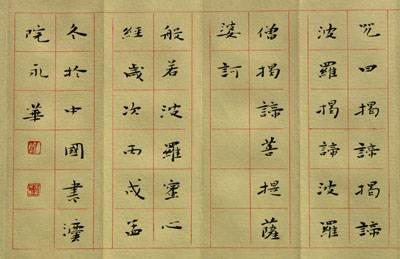 呪曰揭諦揭諦
波羅揭諦波羅
僧揭諦菩提薩
婆訶
般若波羅蜜心
經歲次丙戌孟
冬於中國書灋
院永華